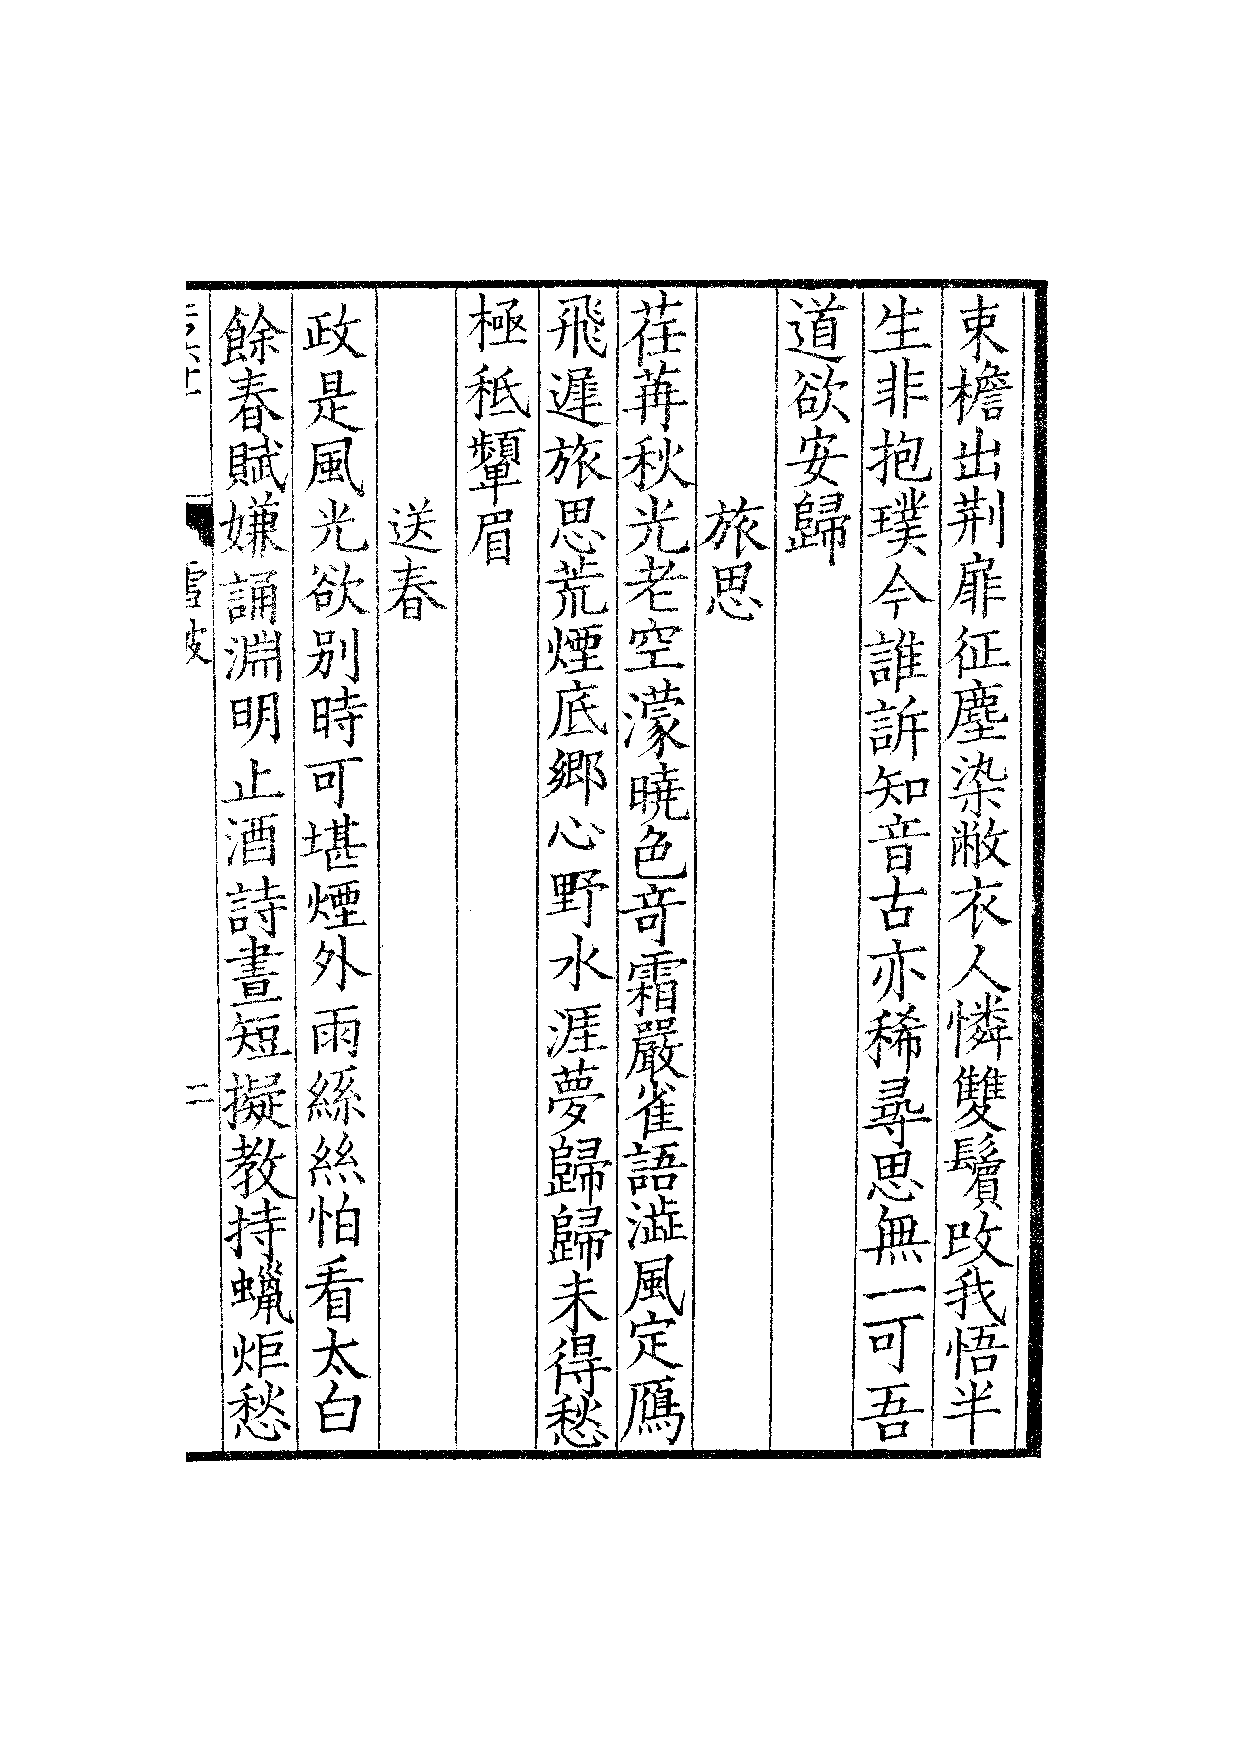 束檐出荆扉征塵染敝衣人憐雙鬢改我悟半
生非抱璞今誰訴知音古亦稀尋思無一可吾
道欲安歸
旅思
荏苒秋光老空濛曉色竒霜嚴雀語澁風定鴈
飛遲旅思荒煙底鄉心野水涯夢歸歸未得愁
極秪顰眉
送春
政是風光欲别時可堪煙外雨絲絲怕看太白
餘春賦嫌誦淵明止酒詩晝短擬教持蠟炬愁
二